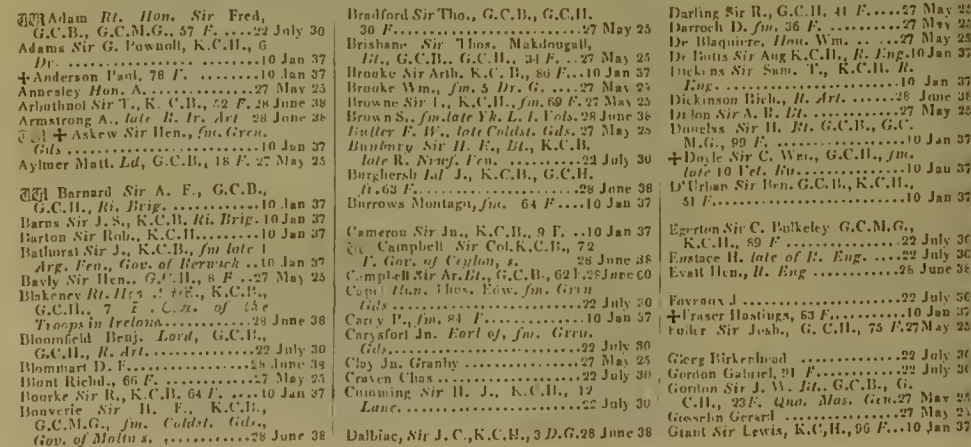 Adam Rt. Hon. Sir Fred,
G.C.B., G.C.M.G., 57 F. .....22 July 30
Adams Sir G. Pownoll, K.C.H., 6
Dr. ....................10 Jan 37
Anderson Paul, 78 F. .........10 Jan 37
Annesley Hon. A. .............27 May 25
Arbuthnot Sir T., K. C.B., 52 F. 28 June 38
Armstrong A., late R. Ir. Art 28 June 38
Askew Sir Hen., fm. Gren.
Gds ....................10 Jan 37
Aylmer Matt. Ld, G.C.B., 18 F. 27 May 25
Barnard Sir A. F., G.C.B.,
G.C.H., Ri. Brig. ............10 Jan 37
Barns Sir J. S., K.C.B. Ri. Brig. 10 Jan 37
Barton Sir Rob., K.C.H. .......10 Jan 37
Bathurst Sir J., K.C.B., fm late 1
Arg. Fen., Gov. of Berwick ..10 Jan 37
Bayly Sir Hen., G.C.H., 8 F ..27 May 25
Blakeney Rt. Hon. K.C.B.,
G.C.H., 7 F. of the
Troops in Ireland. ..........28 June 38
Bloomfield Benj. Lord, G.C.B.,
G.C.H., R. Art. ..............22 July 30
Blommart D. F. ...............28 June 38
Blunt Richd., 66 F. ..........27 May 25
Bourke Sir R., K.C.B. 64 F. ....10 Jan 37
Bouverie Sir H. F., K.C.B.,
G.C.M.G., fm. Coldst. Gds.,
Gov. of Malta s. ............28 June 38
Bradford Sir Tho., G.C.B., G.C.H.
30 F. ........................27 May 25
Brisbane Sir Thos. Makdougall,
Bt., G.C.B., G.C.H., 34 F. ..27 May 25
Brooke Sir Arth. K.C.B., 86 F...10 Jan 37
Brooke Wm., fm. 5 Dr. G. .....27 May 25
Browne Sir T., K.C.H., fm. 69 F. 27 May 25
Brown S., fm. late Yk. L. I. Vols. 28 June 38
Buller F. W., late Coldst. Gds. 27 May 25
Bunbury Sir H. E., Bt., K.C.B.
late R. Newf. Fen. ..........22 July 30
Burghersh Ld J., K.C.B., G.C.H.
ft. 63 F. ....................28 June 38
Burrows Montagu, fm. 64 F ....10 Jan 37
Cameron Sir Jn., K.C.B., 9 F. ..10 Jan 37
Campbell Sir Col. K.C.B., 72
F. Gov. of Ceylon, s. 28 June 38
Campbell Sir Ar. Bt., G.C.B., 62 F. 28 June
Capel Hon. Thos. Edw. fm. Gren
Gds ....................22 July 30
Carey P., fm. 84 F ............10 Jan 37
Carysfort Jn. Earl of, fm. Gren.
Gds. ....................22 July 30
Clay Jn. Granby ..............27 May 25
Craven Chas ..................22 July 30
Cumming Sir H. J., K.C.H., 12
Lanc. .......................22 July 30
Dalbiac, Sir J. C., K.C.H., 3 D.G. 28 June 38
Darling Sir R., G.C.H. 41 F. .....27 May 25
Darroch D. fm. 36 F. ..........27 May 25
De Blaquiere, Hon. Wm. .......27 May 25
De Butts Sir Aug K.C.H., R. Eng. 10 Jan 37
Dickens Sir Sam. T., K.C.H. R.
Eng. ....................10 Jan 37
Dickinson Rich., R. Art. ......28 June 38
Dillon Sir A. R. Bt. .........27 May 25
Douglas Sir H. Bt. G.C.B., G.C.
M.G., 99 F. .................10 Jan 37
Doyle Sir C. Wm., G.C.H., fm.
late 10 Vet. Bn. ............10 Jan 37
D'Urban Sir Ben. G.C.B., K.C.H.,
51 F. .......................10 Jan 37
Egerton Sir C. Bulkeley G.C.M.G.,
K.C.H., 89 F ................22 July 30
Eustace H. late of R. Eng. ....22 July 30
Evatt Hen., R. Eng ............28 June 38
Faveaux J ....................22 July 30
Fraser Hastings, 63 F. ........10 Jan 37
Fuller Sir Josh., G. C.H., 75 F. 27 May 25
Gierg Birkenhead ..............22 July 30
Gordon Gabriel, 91 F ..........22 July 30
Gordon Sir J. W. Bt. G.C.B., G.
C.H., 23 F. Qua. Mas. Gen. 27 May 25
Gosselin Gerard ...............27 May 25
Grant Sir Lewis, K.C.H., 96 F...10 Jan 37